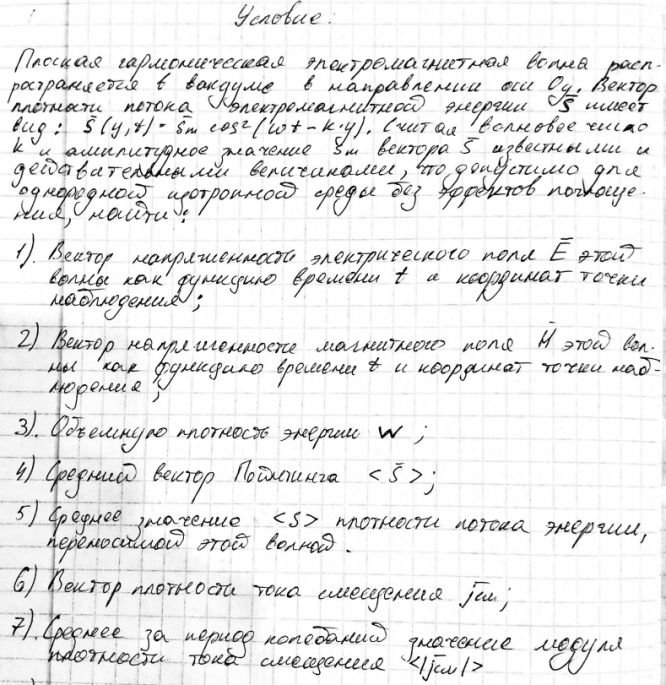 Условие:
Плоская гармоническая электромагнитная волна расп-
ространяется в вакууме в направлении оси Oy. Вектор
плотности потока электромагнитной энергии S̄ имеет
вид: S̄(y,t) = S̄m cos²(ωt - k·y). Считая волновое число
k и амплитудное значение S̄m вектора S̄ известными и
действительными величинами, что допустимо для
однородной изотропной среды без эффектов поглоще-
ния, найти:
1). Вектор напряженности электрического поля Ē этой
волны как функцию времени t и координат точки
наблюдения;
2) Вектор напряженности магнитного поля H̄ этой вол-
ны как функцию времени t и координат точки наб-
людения;
3). Объемную плотность энергии w;
4) Средний вектор Пойнтинга <S̄>;
5) Среднее значение <S> плотности потока энергии,
переносимой этой волной.
6) Вектор плотности тока смещения j̄см;
7). Среднее за период колебаний значение модуля
плотности тока смещения <|j̄см|>